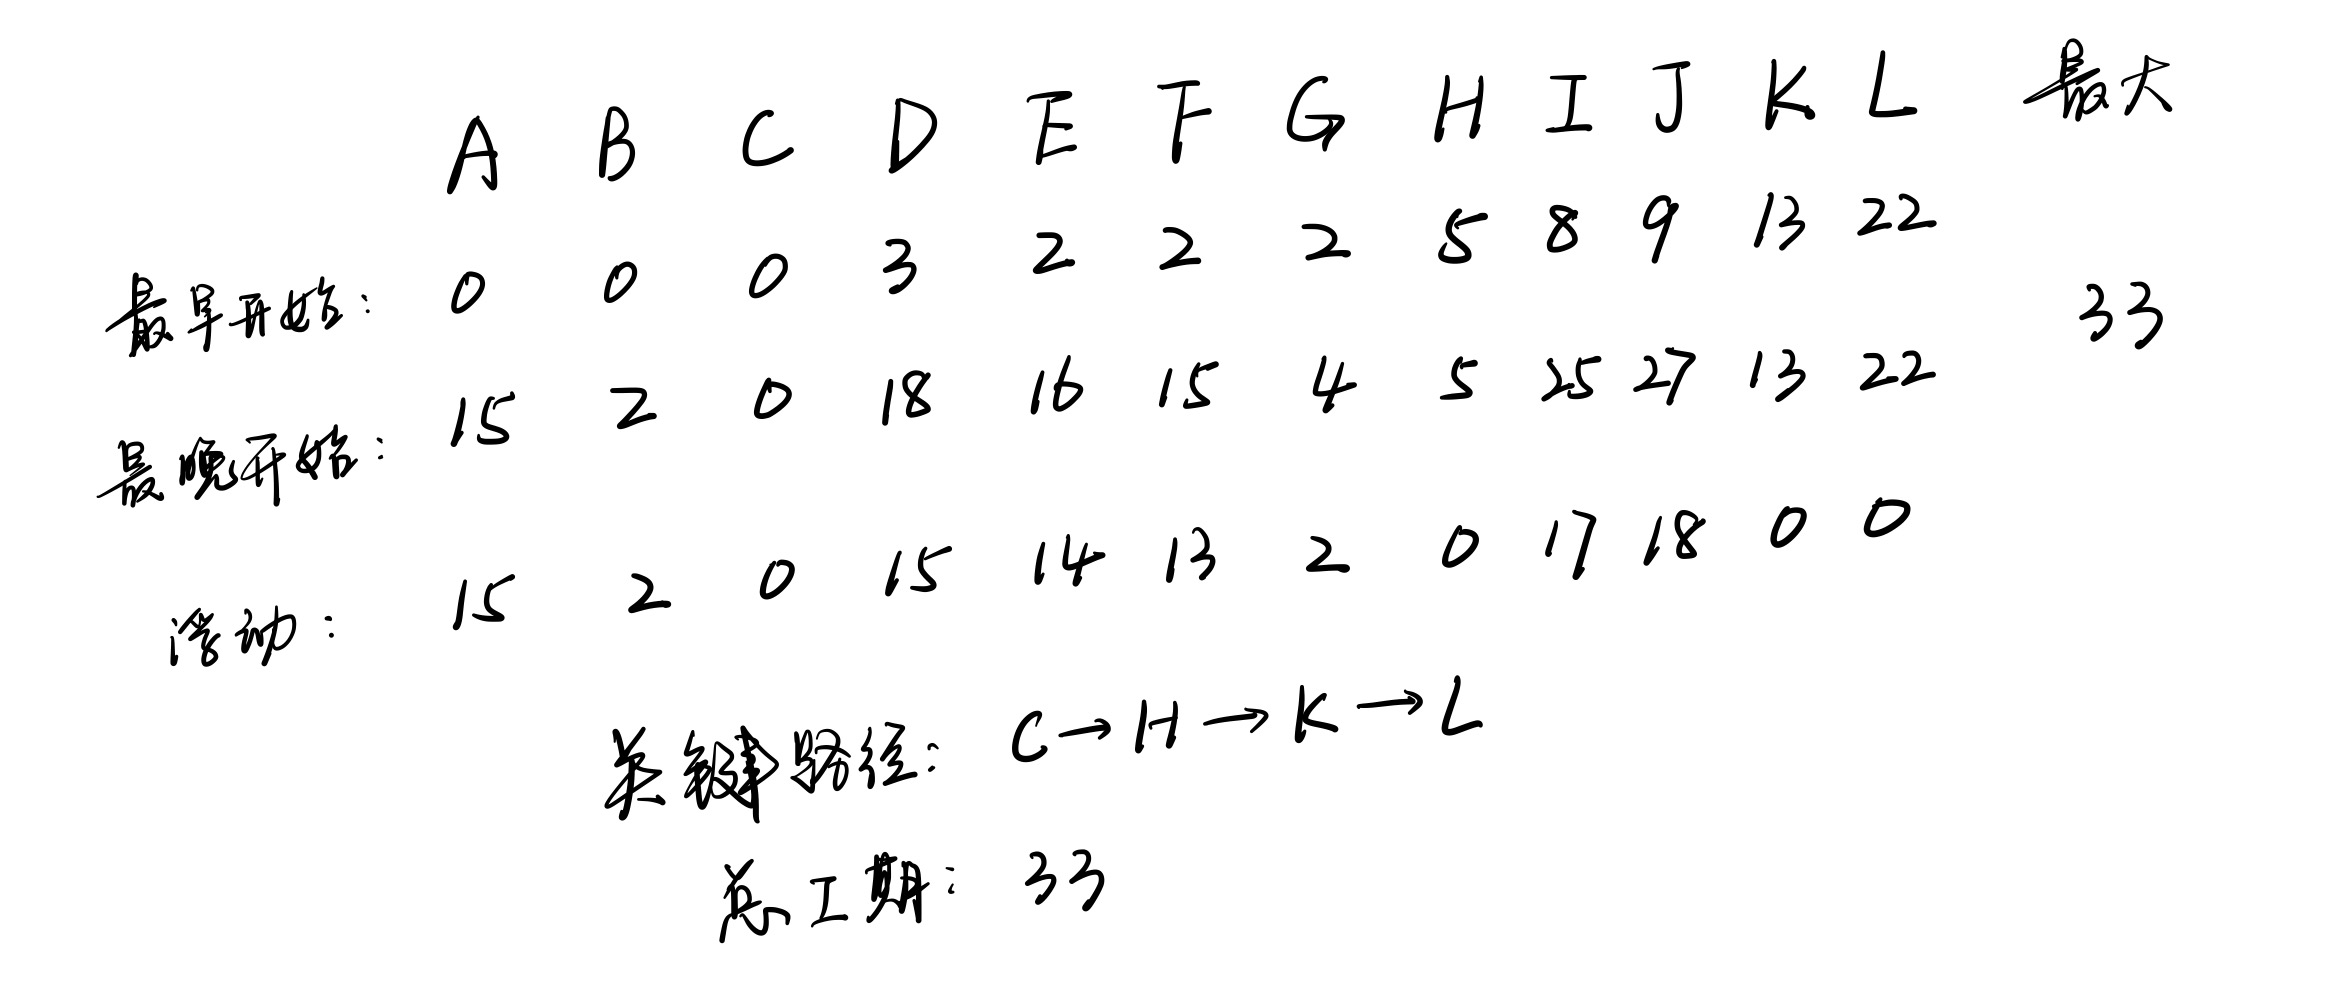 A B C D E F G H I J K L 最大
最早开始: 0 0 0 3 2 2 2 5 8 9 13 22 33
最晚开始: 15 2 0 18 16 15 4 5 25 27 13 22
浮动: 15 2 0 15 14 13 2 0 17 18 0 0
关键路径: C→H→K→L
总工期: 33